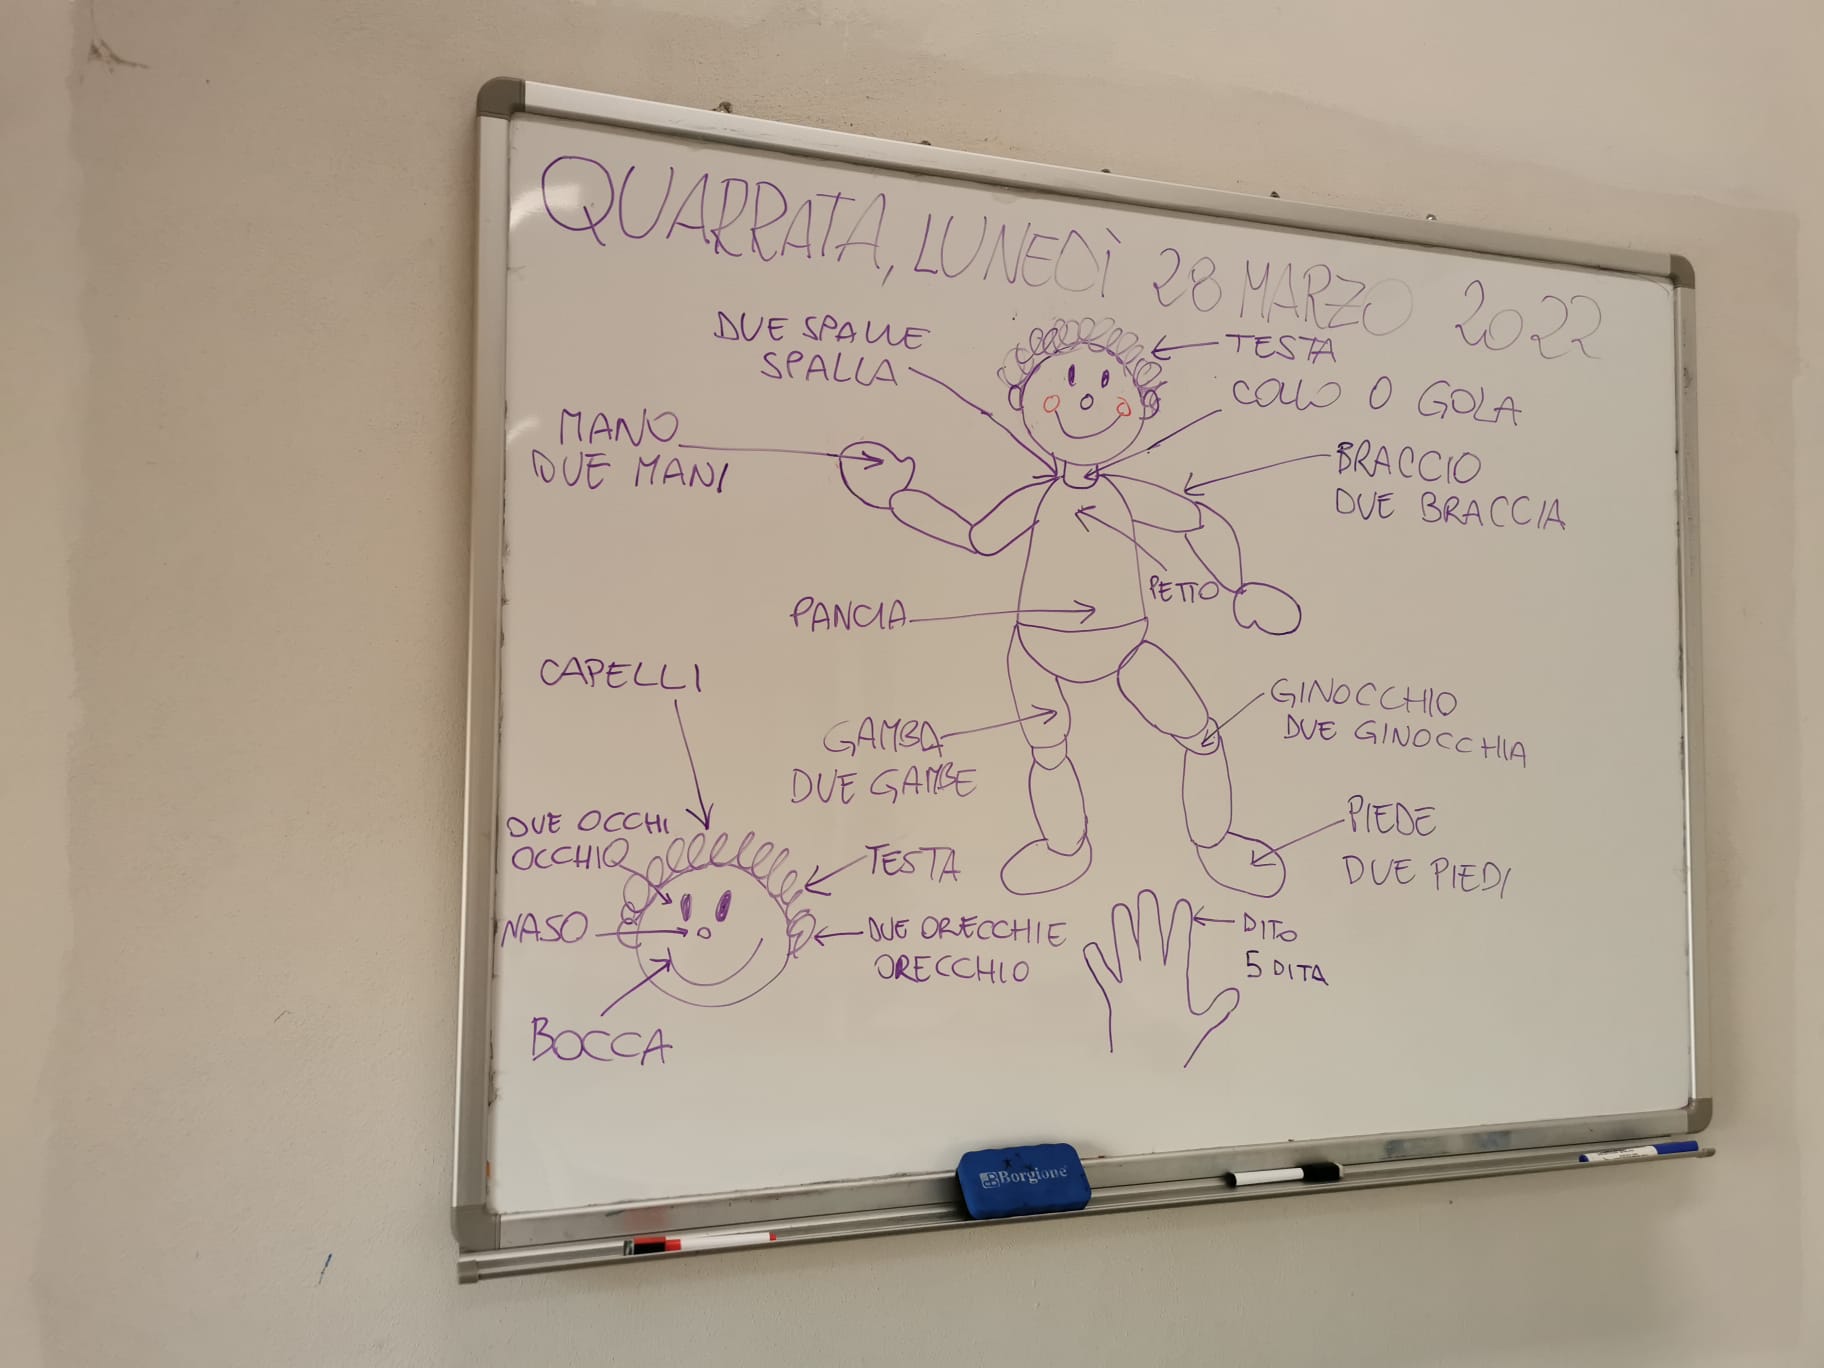 QUARRATA, LUNEDÌ 28 MARZO 2022
DUE SPALLE
SPALLA
TESTA
COLLO O GOLA
MANO
DUE MANI
BRACCIO
DUE BRACCIA
PETTO
PANCIA
CAPELLI
GINOCCHIO
DUE GINOCCHIA
GAMBA
DUE GAMBE
PIEDE
DUE PIEDI
DUE OCCHI
OCCHIO
TESTA
NASO
DUE ORECCHIE
ORECCHIO
DITO
5 DITA
BOCCA
Borgione